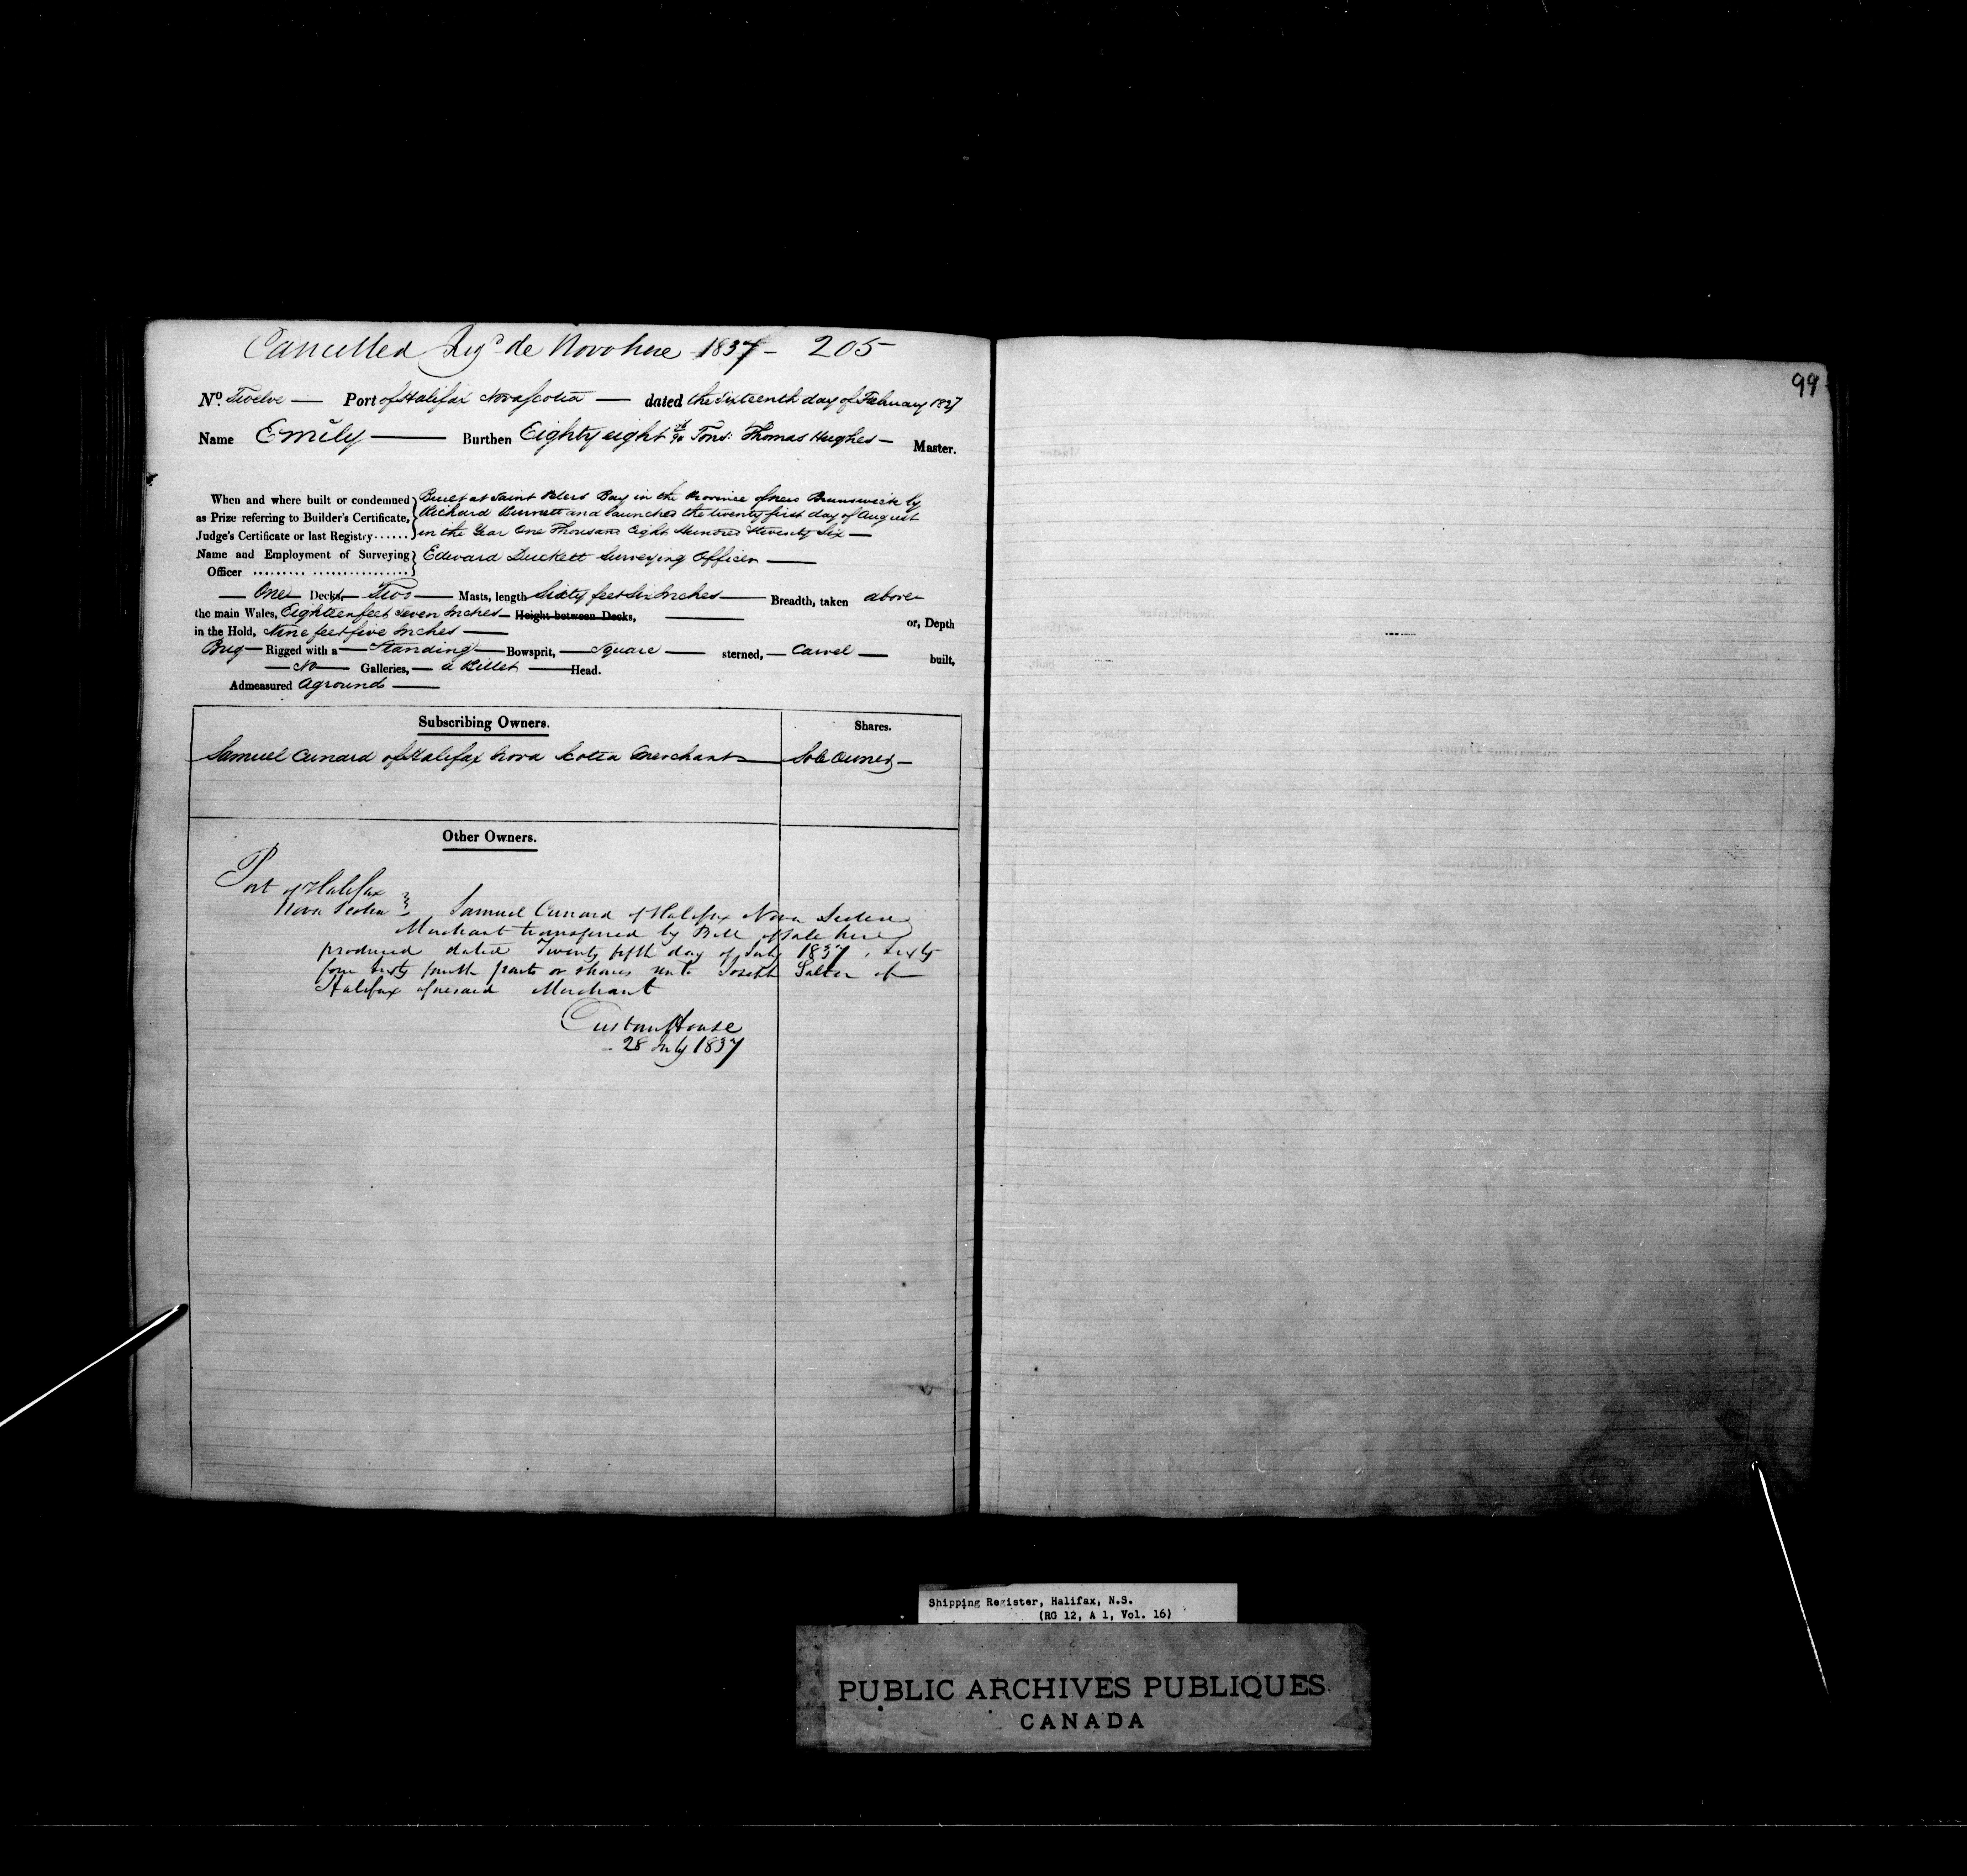 Cancelled Regd de Novo here 1837 - 205
99
No. Twelve — Port of Halifax Nova Scotia — dated the Sixteenth day of February 1827
Name Emily — Burthen Eighty eight Tons: Thomas Hughes — Master.
When and where built or condemned Built at Saint Peters Bay in the Province of New Brunswick by
as Prize referring to Builder's Certificate, Richard and launched the twenty first day of August
Judge's Certificate or last Registry...... in the Year One Thousand Eight Hundred & twenty Six —
Name and Employment of Surveying Edward Duckett Surveying Officer —
Officer
— One — Decks, — Two — Masts, length Sixty feet Six Inches — Breadth, taken above
the main Wales, Eighteen feet Seven Inches — Height between Decks, — or, Depth
in the Hold, Nine feet five Inches —
Brig — Rigged with a — Standing — Bowsprit, — Square — sterned, — Carvel — built,
— No — Galleries, — a Billet — Head.
Admeasured Aground —
Subscribing Owners. Shares.
Samuel Cunard of Halifax Nova Scotia Merchant — Sole Owner —
Other Owners.
Port of Halifax
Nova Scotia } Samuel Cunard of Halifax Nova Scotia
Merchant transferred by Bill of Sale here
produced dated Twenty fifth day of July 1837, Sixty
four sixty fourth parts or shares unto Joseph Salter of
Halifax aforesaid Merchant
Custom House
28 July 1837
Shipping Register, Halifax, N.S.
(RG 12, A 1, Vol. 16)
PUBLIC ARCHIVES PUBLIQUES
CANADA